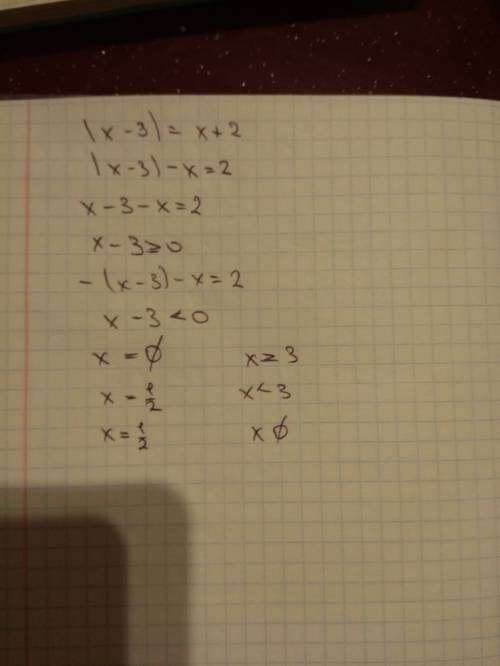 |x-3|= x+2
|x-3|-x=2
x-3-x=2
x-3≥0
-(x-3)-x=2
x-3<0
x=∅ x≥3
x=1/2 x<3
x=1/2 x∅